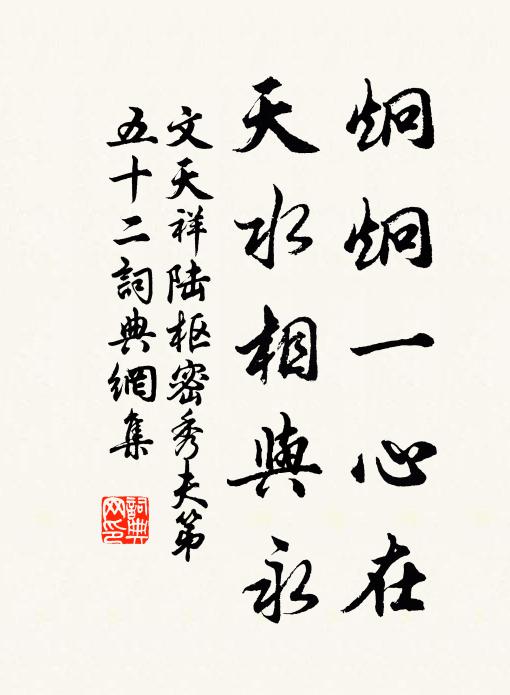 炯炯一心在
天水相與永
文天祥陸枢密秀夫第
五十二詞典網集
詞典
网印